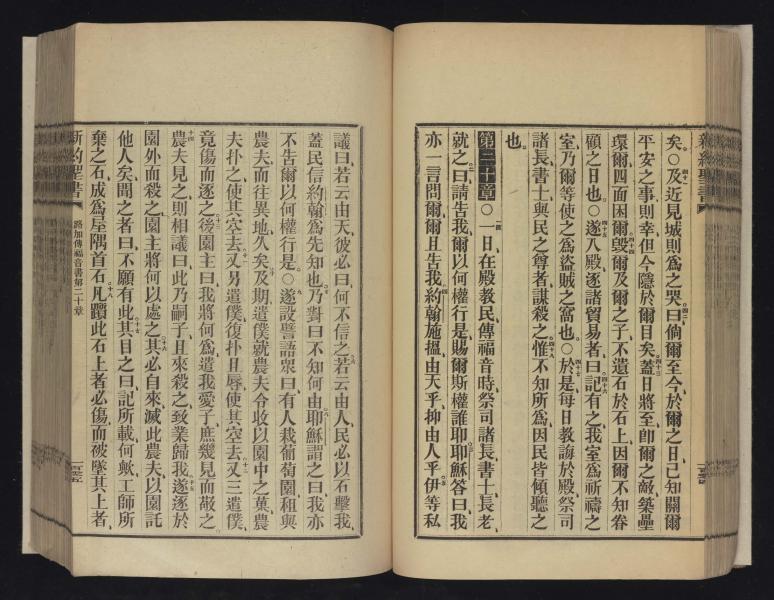 新約聖書
矣○及近見城則爲之哭曰倘爾至今於爾之日已知關爾
平安之事則幸但今隱於爾目矣蓋日將至卽爾之敵築壘
環爾四面困爾毀爾及爾之子不遺石於石上因爾不知眷
顧之日也○遂入殿逐諸貿易者曰記有之我室爲祈禱之
室乃爾等使之爲盜賊之窩也○於是每日教誨於殿祭司
諸長書士與民之尊者謀殺之惟不知所爲因民皆傾聽之
也
第二十章○一日在殿教民傳福音時祭司諸長書士長老
就之曰請告我爾以何權行是賜爾斯權誰耶耶穌答曰我
亦一言問爾爾且告我約翰施搵由天乎抑由人乎伊等私
議曰若云由天彼必曰何不信之若云由人民必以石擊我
蓋民信約翰爲先知也乃對曰不知何由耶穌謂之曰我亦
不告爾以何權行是○遂設譬語眾曰有人栽葡萄園租與
農夫而往異地久矣及期遣僕就農夫令收以園中之菓農
夫扑之使其空去又另遣僕復扑且辱使其空去又三遣僕
竟傷而逐之後園主曰我將何爲遣我愛子庶幾見而敬之
農夫見之則相議曰此乃嗣子且來殺之致業歸我遂逐於
園外而殺之園主將何以處之其必自來滅此農夫以園託
他人矣聞之者曰不願有此其目之曰記所載何歟工師所
棄之石成爲屋隅首石凡躓此石上者必傷而破墜其上者
新約聖書 路加傳福音書第二十章